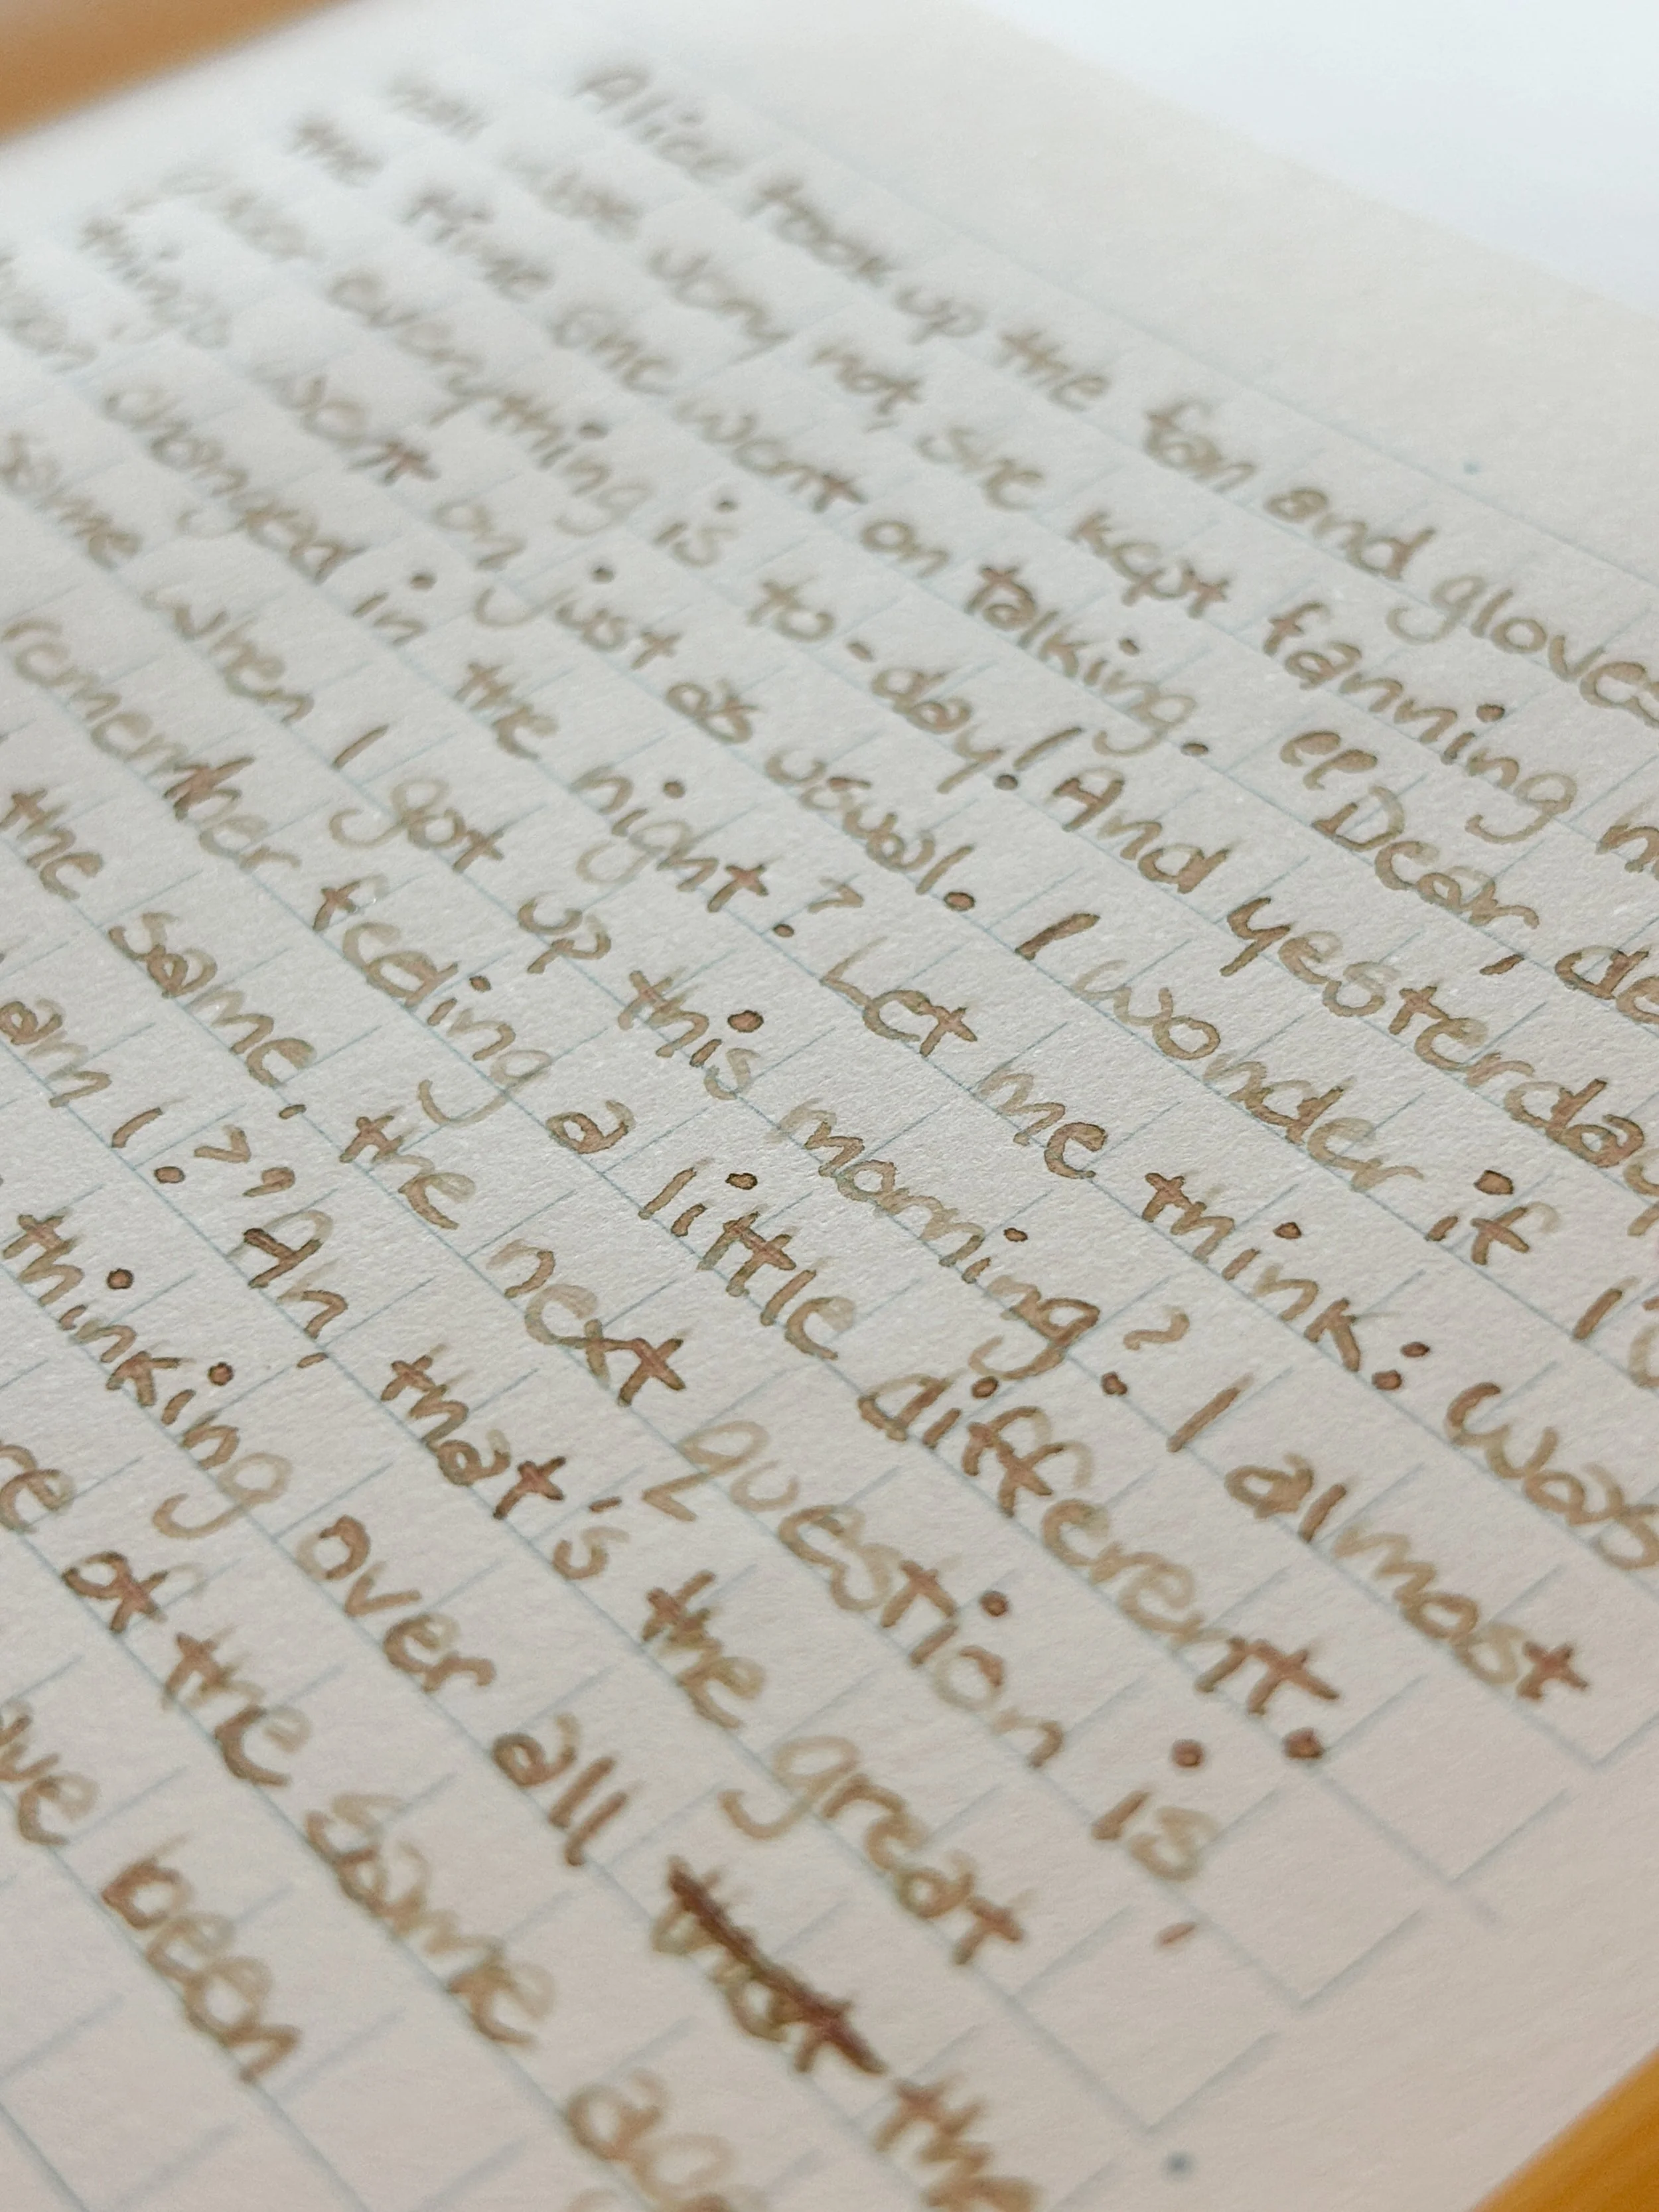 Alice took up the fan and gloves
hall was very hot, she kept fanning
the time she went on talking. "Dear, de
queer everything is to-day! And yesterday
things went on just as usual. I wonder if I
changed in the night? Let me think: was
same when I got up this morning? I almost
remember feeling a little different.
the same, the next question is,
am I?' Ah, that's the great
thinking over all the
of the same age
been